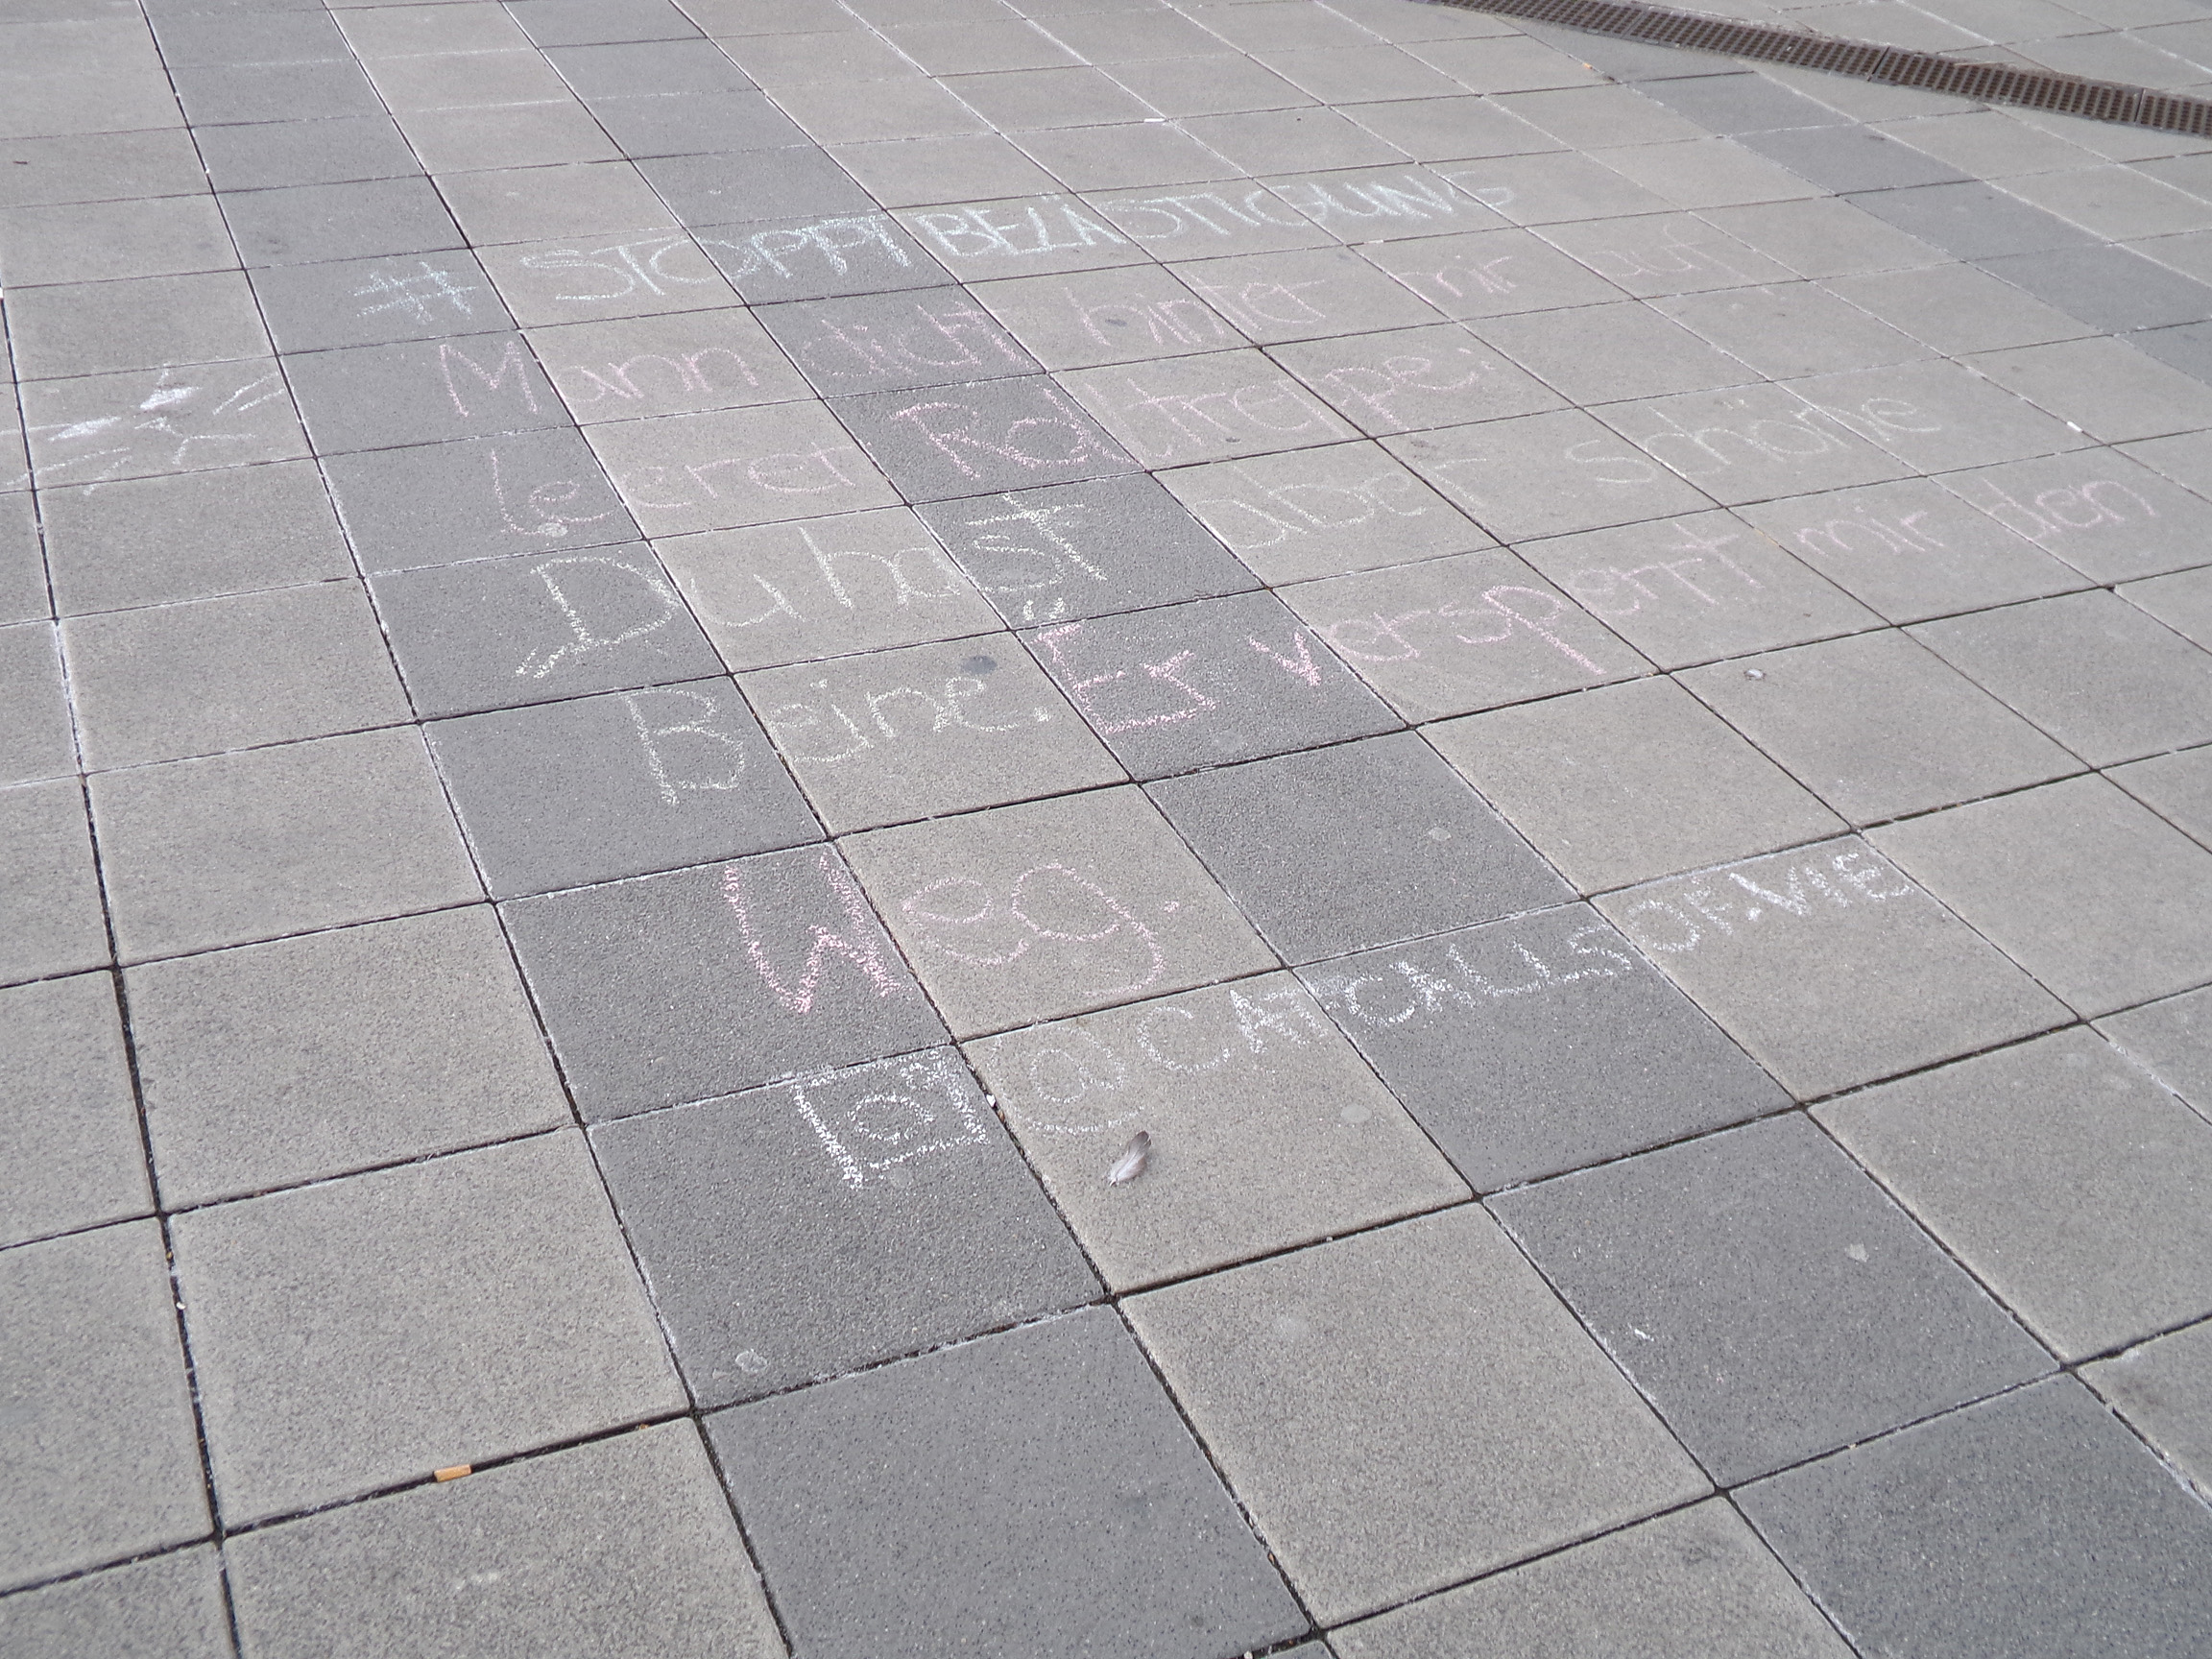 # STOPPT BELÄSTIGUNG
Mann dicht hinter mir auf
leerer Rolltreppe:
Du hast aber schöne
Beine. Er versperrt mir den
Weg.
@CATCALLSOF.VIE